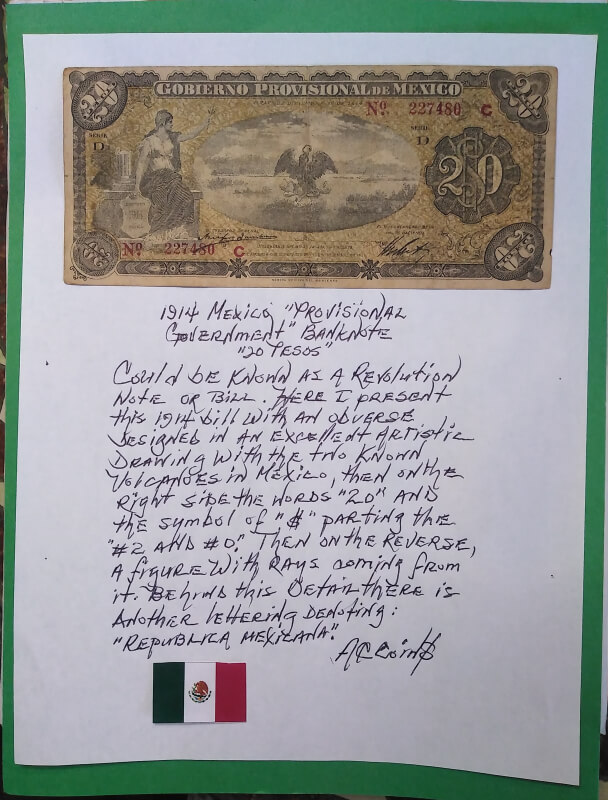 20
GOBIERNO PROVISIONAL DE MEXICO
20
Nº. 227480 C
SERIE
D
SERIE
D
20
1914
Nº. 227480 C
20
20
1914 MEXICO "PROVISIONAL
GOVERNMENT" BANKNOTE
"20 PESOS"
COULD BE KNOWN AS A REVOLUTION
NOTE OR BILL. HERE I PRESENT
this 1914 bill WITH AN OBVERSE
DESIGNED IN AN EXCELLENT ARTISTIC
DRAWING WITH the two KNOWN
VOLCANOES IN MEXICO, then ON the
RIGHT SIDE THE WORDS "20" AND
the symbol of "$" PARTING the
"#2 AND #0". THEN ON the REVERSE,
A FIGURE WITH RAYS COMING FROM
it. BEHIND this DETAIL THERE IS
ANOTHER LETTERING DENOTING:
"REPUBLICA MEXICANA".
ACCoin$